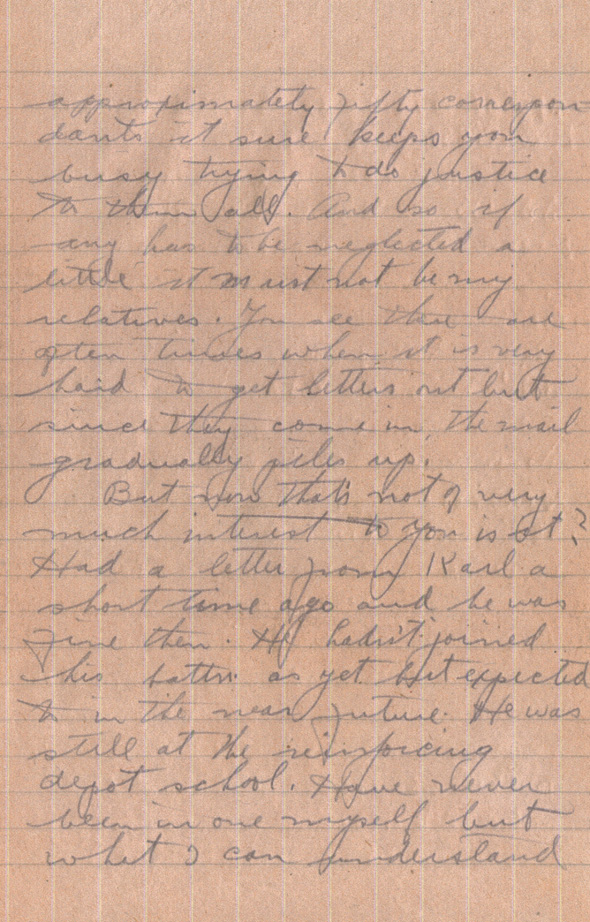 approximately fifty correspon-
dants it sure keeps you
busy trying to do justice
to them all. And so if
any has to be neglected a
little it must not be my
relatives. You see there are
often times when it is very
hard to get letters out but
since they come in, the mail
gradually piles up.
But now that's not of very
much interest to you is it?
Had a letter from Karl a
short time ago and he was
fine then. He hadn't joined
his battry as yet but expected
to in the near future. He was
still at the reinforcing
depot school. Have never
been in one myself but
what I can understand